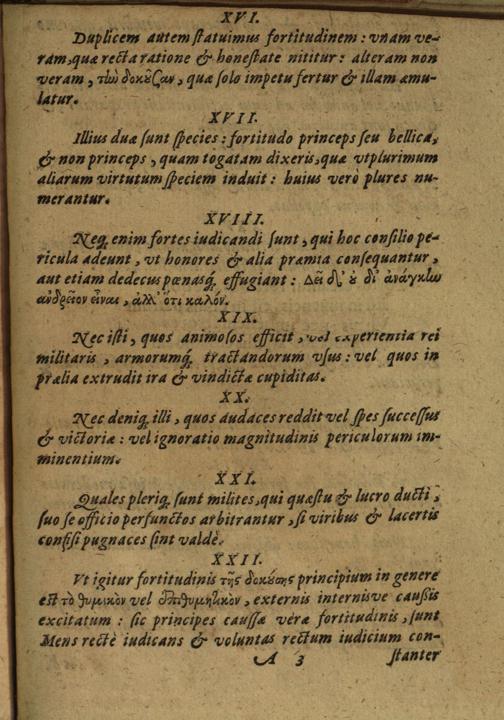 XVI.
Duplicem autem statuimus fortitudinem : vnam ve-
ram, quæ recta ratione & honestate nititur : alteram non
veram, τὼ δοκῦσαν, quæ solo impetu fertur & illam æmu-
latur.
XVII.
Illius duæ sunt species : fortitudo princeps seu bellica,
& non princeps, quam togatam dixeris, quæ vtplurimum
aliarum virtutum speciem induit : huius verò plures nu-
merantur.
XVIII.
Neq; enim fortes iudicandi sunt, qui hoc consilio pe-
ricula adeunt, vt honores & alia præmia consequantur,
aut etiam dedecus pœnasq; effugiant : Δεῖ δ' ȣ δι' ἀνάγκω
ἀνδρεῖον εἶναι, ἀλλ' ὅτι καλόν.
XIX.
Nec isti, quos animosos efficit, vel experientia rei
militaris, armorumq; tractandorum vsus : vel quos in
prælia extrudit ira & vindictæ cupiditas.
XX.
Nec deniq; illi, quos audaces reddit vel spes successus
& victoriæ : vel ignoratio magnitudinis periculorum im-
minentium.
XXI.
Quales pleriq; sunt milites, qui quæstu & lucro ducti,
suo se officio perfunctos arbitrantur, si viribus & lacertis
confisi pugnaces sint valdè.
XXII.
Vt igitur fortitudinis τῆς δοκύσης principium in genere
est τὸ θυμικὸν vel ἐπιθυμητικὸν, externis internisve caußis
excitatum : sic principes caussæ veræ fortitudinis, sunt
Mens rectè iudicans & voluntas rectum iudicium con-
A 3 stanter